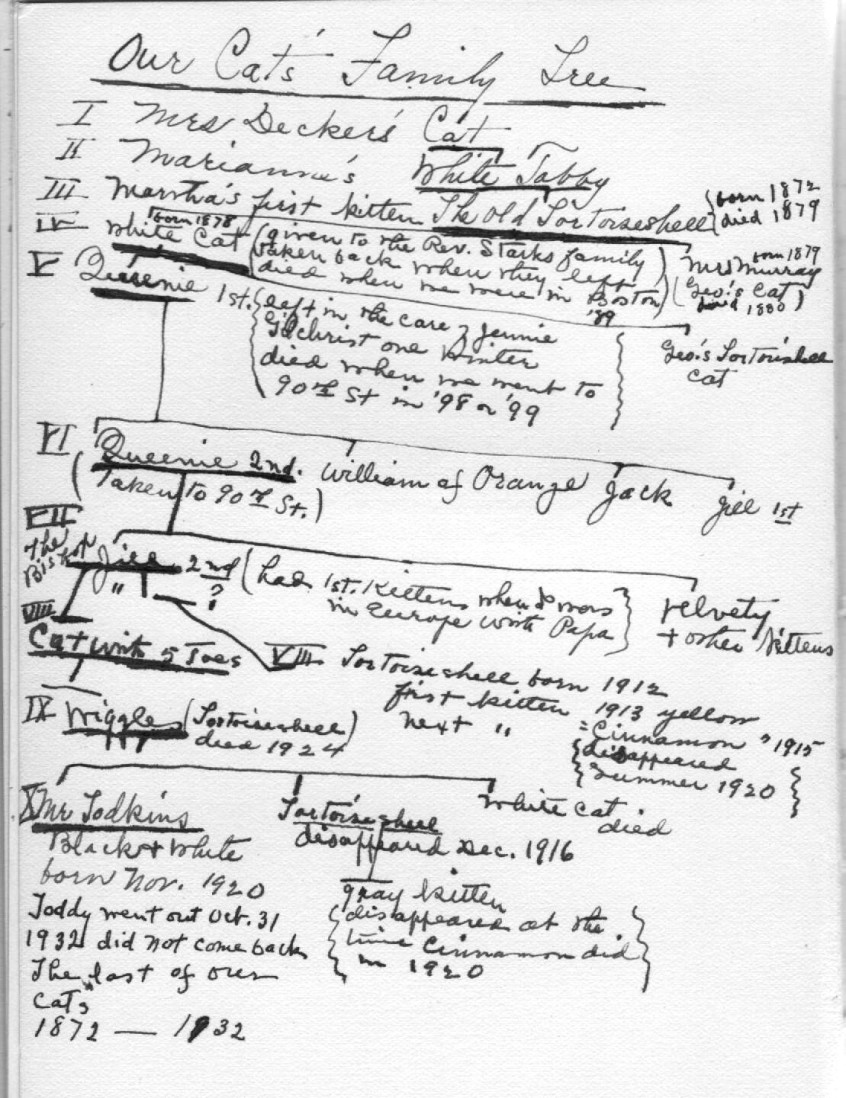 Our Cats' Family Tree
I Mrs Decker's Cat
II Marianna's White Tabby
III Martha's first kitten The Old Tortoiseshell { born 1872
died 1879
IV White Cat born 1878 (given to the Rev. Starks family
taken back when they left
died when we were in Boston '89)
Mrs Murray born 1879
(Geo.'s Cat)
died 1880
V Queenie 1st. (left in the care of Jennie
Gilchrist one winter
died when we went to
90th St in '98 or '99
Geo's Tortoishell
Cat
VI Queenie 2nd. William of Orange Jack Jill 1st
(Taken to 90th St.)
VII
The Bishop Jill 2nd (had 1st. Kittens when I was
" ?
in Europe with Papa
Velvety
+ other Kittens
VIII
Cat with 5 Toes
VIII Tortoiseshell born 1912
first kitten 1913 yellow
next " = Cinnamon " 1915
disappeared
Summer 1920
IX Wiggles (Tortoiseshell)
died 1924
X Mr Todkins
Black + White
born Nov. 1920
Toddy went out Oct. 31
1932 did not come back
The last of our
Cats
1872 — 1932
Tortoiseshell
disappeared Dec. 1916
White Cat
died
gray kitten
disappeared at the
time Cinnamon did
in 1920